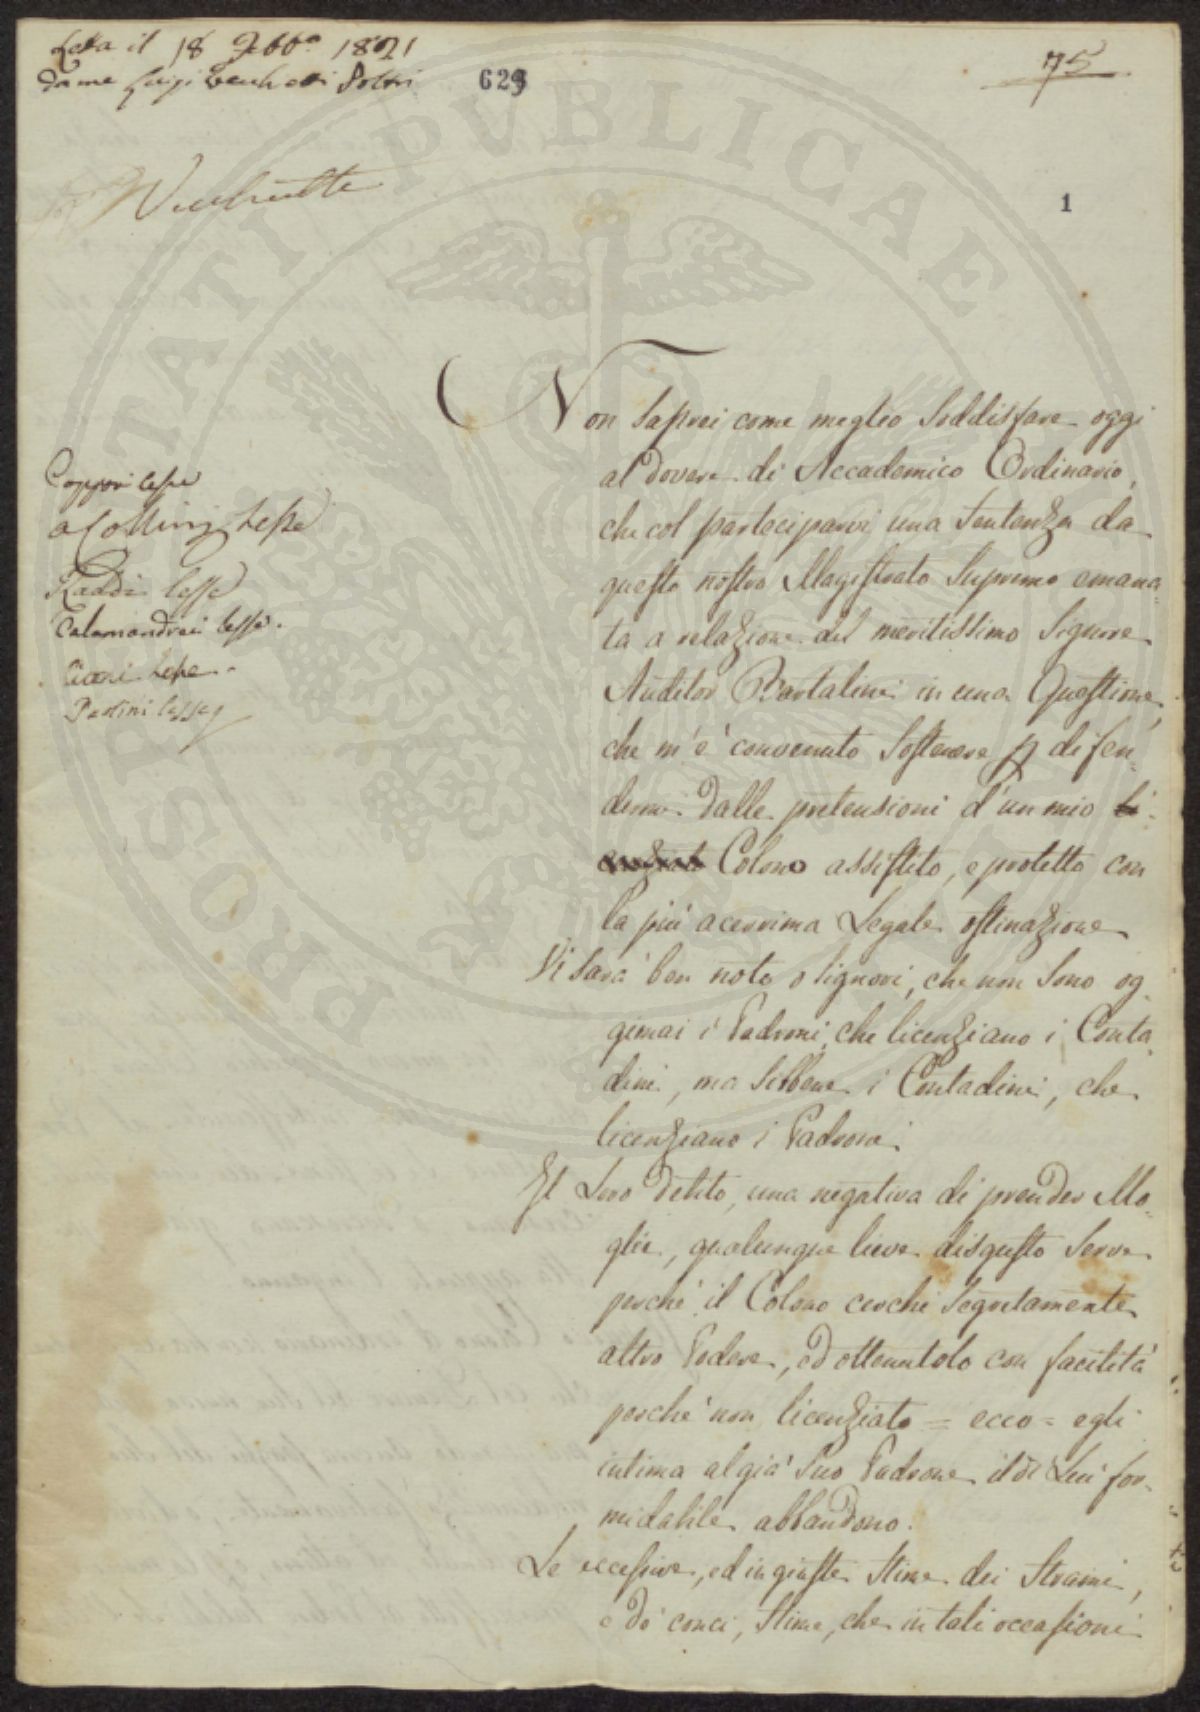 Letta il 18 Febb.o 1821
da me Luigi
629
75
1
Coppi lesse
Collini lesse
Raddi lesse
Calamandrei lesse.
lesse.
Pastini lesse
Non saprei come meglio soddisfare oggi
al dovere di Accademico Ordinario,
che col parteciparvi una Sentenza da
questo nostro Magistrato Supremo emana=
ta a relazione del meritissimo Signore
Auditor Bartalini in una Questione,
che m'è convenuto sostenere p difen=
dermi dalle pretensioni d'un mio li=
cenziato Colono assistito, e protetto con
la più acerrima Legale ostinazione
Vi sarà ben noto o Signori, che non sono og=
gimai i Padroni, che licenziano i Conta=
dini, ma sibbene i Contadini, che
licenziano i Padroni.
Il Loro Debito, una negativa di prender Mo=
glie, qualunque lieve disgusto serve
perché il Colono cerchi segretamente
altro Podere, ed ottenutolo con facilità
perché non licenziato = ecco = egli
intima al già suo Padrone il di Lui for=
midabile abbandono.
Le eccessive, ed ingiuste stime dei Strami,
e dò conci, stime, che in tali occasioni
PROSPERITATI PUBLICAE